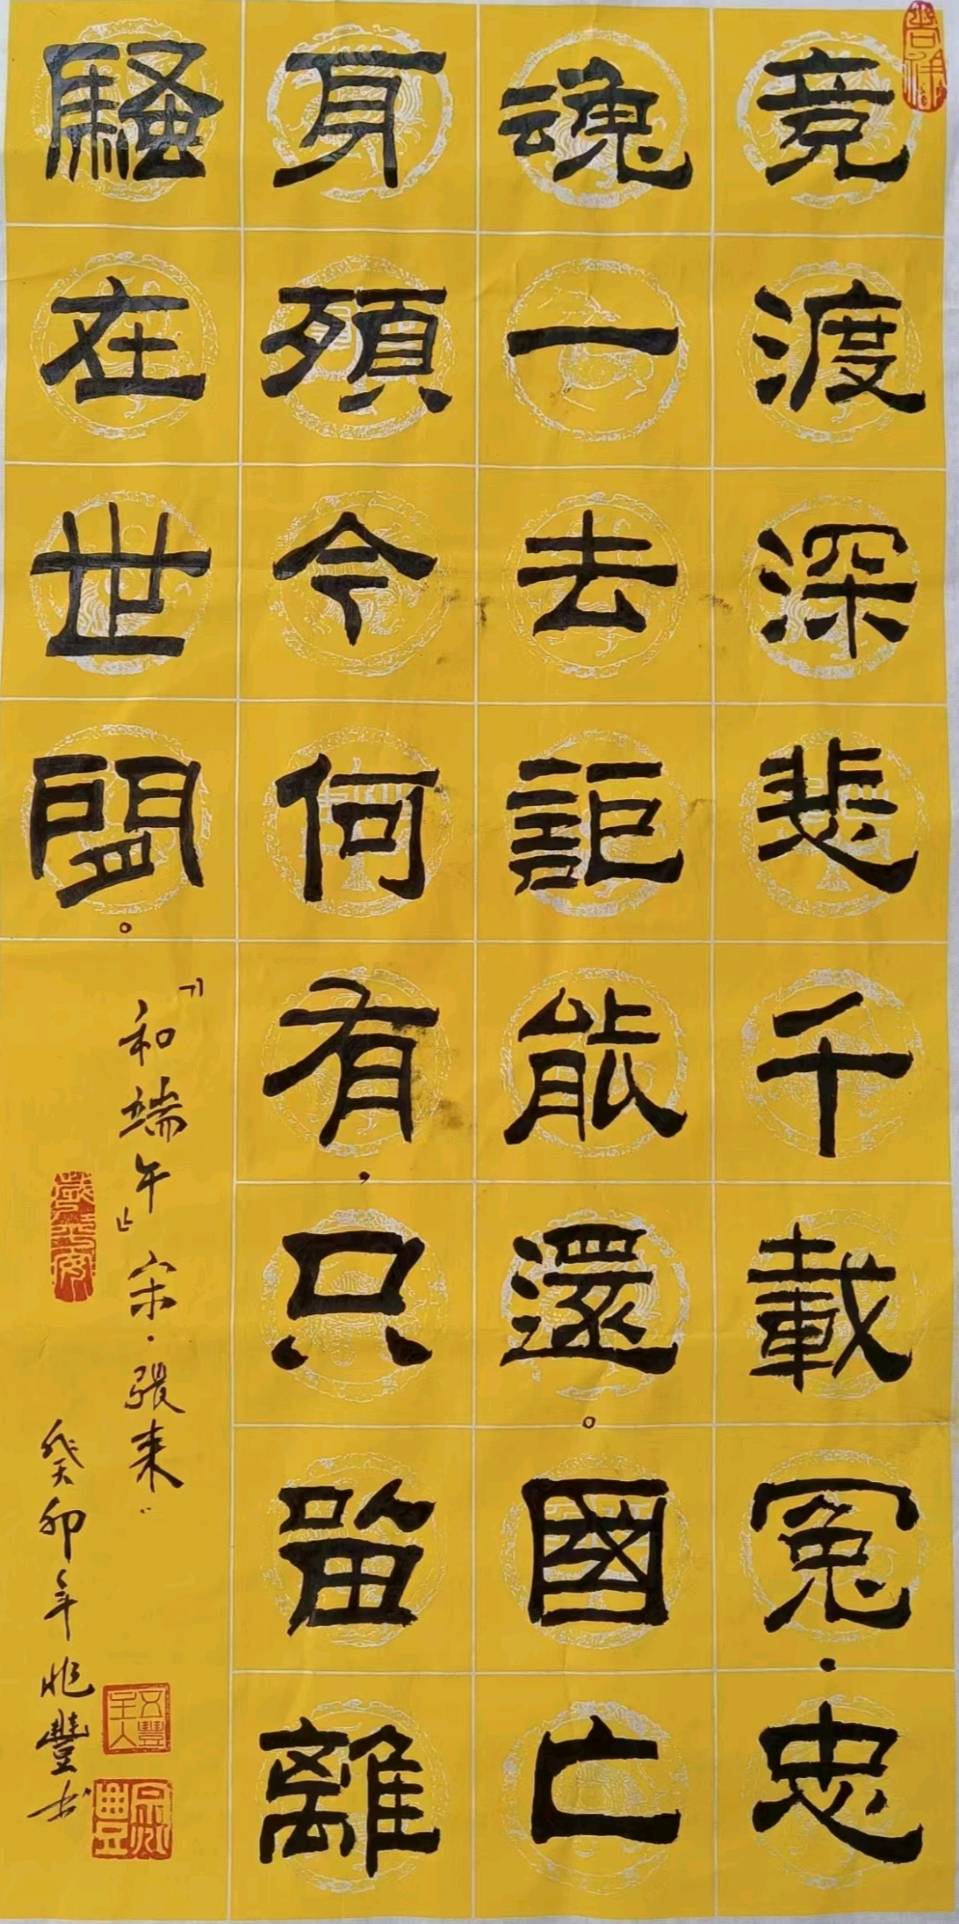 吉祥
竞渡深悲千載冤·忠
魂一去詎能還。國亡
身殞今何有，只留離
騷在世間。
『和端午』宋·張耒
歲歲平安
癸卯年兆豐书